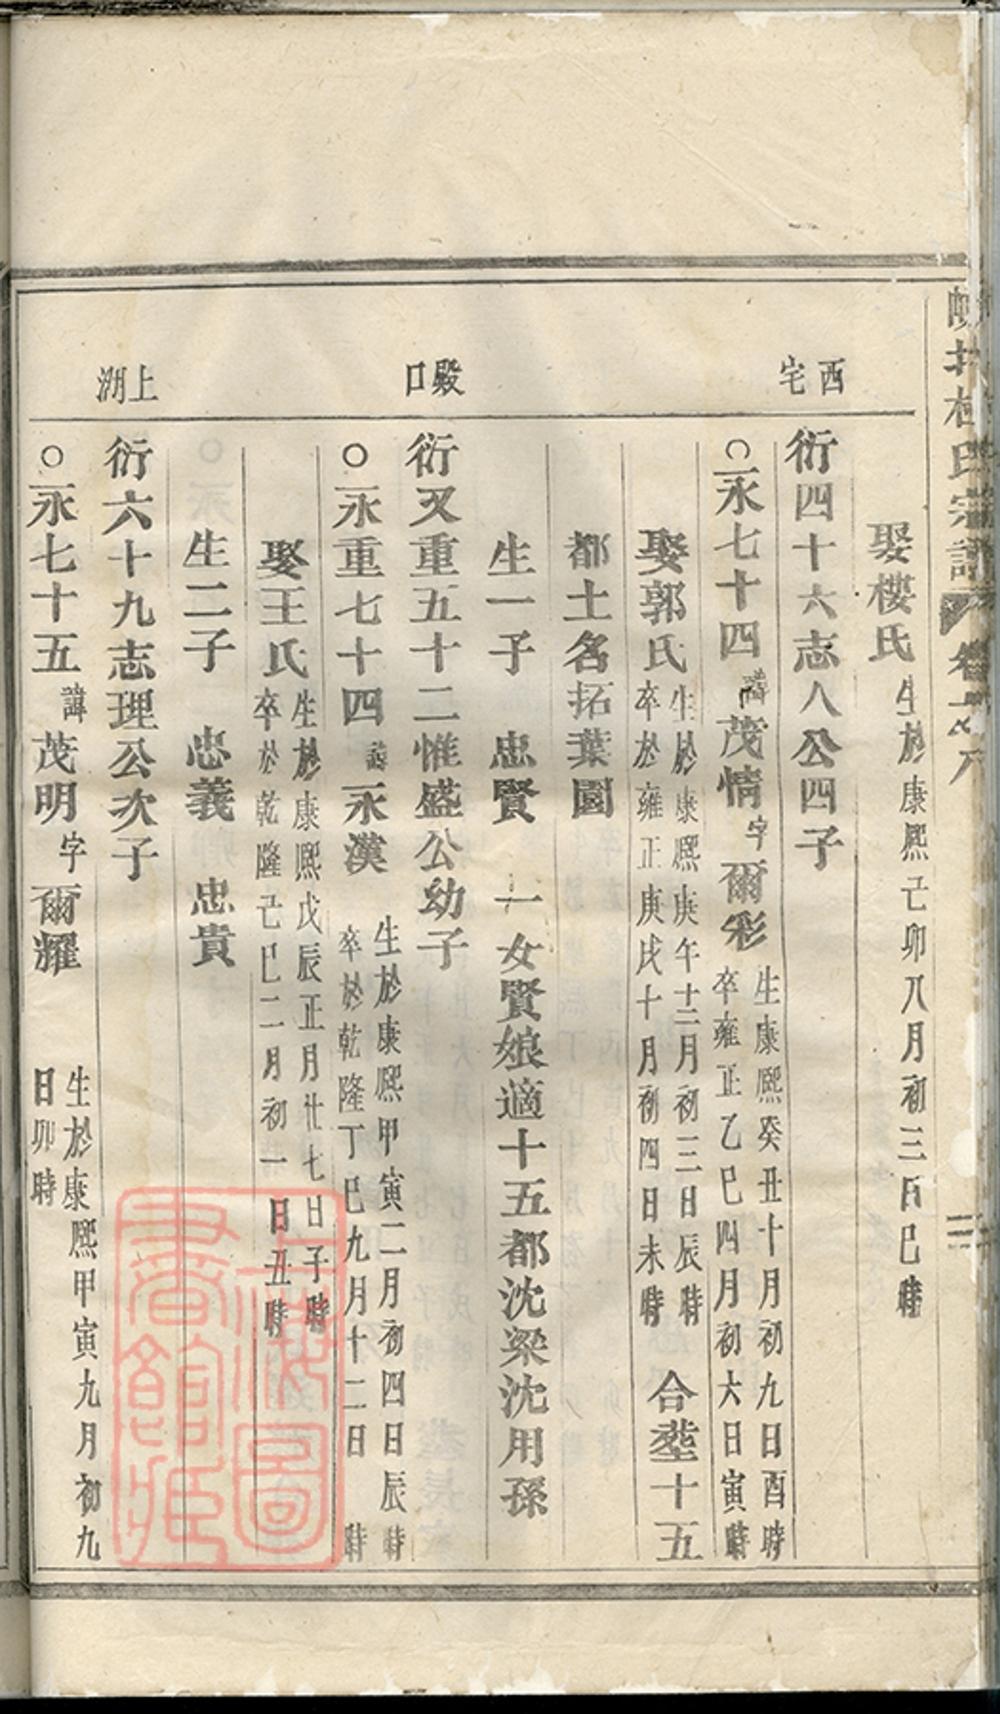 氏宗譜 卷
西宅
殿口
上湖
娶樓氏 生於康熙己卯八月初三日巳時
衍四十六志八公四子
○永七十四 諱 茂情 字 爾彩 生康熙癸丑十月初九日酉時 卒雍正乙巳四月初六日寅時
娶郭氏 生於康熙庚午十二月初三日辰時 卒於雍正庚戌十月初四日未時 合塟十五
都土名拓葉園
生一子 忠賢 一女賢娘適十五都沈梁沈用孫
衍又重五十二惟盛公幼子
○永重七十四 諱 永漢 生於康熙甲寅二月初四日辰時 卒於乾隆丁巳九月十二日 時
娶王氏 生於康熙戊辰正月廿七日子時 卒於乾隆己巳二月初一日丑時
生二子 忠義 忠貴
衍六十九志理公次子
○永七十五 諱 茂明 字 爾耀 生於康熙甲寅九月初九日卯時
上海圖書館藏